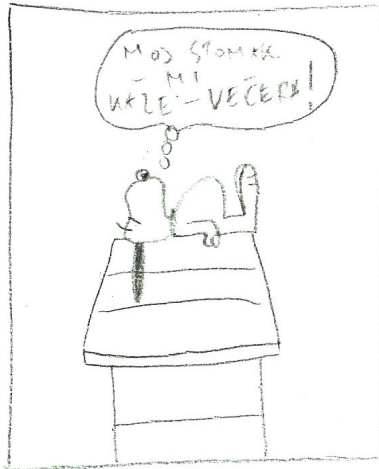 MOJ STOMAK
- MI
KAŽE - VEČERA!